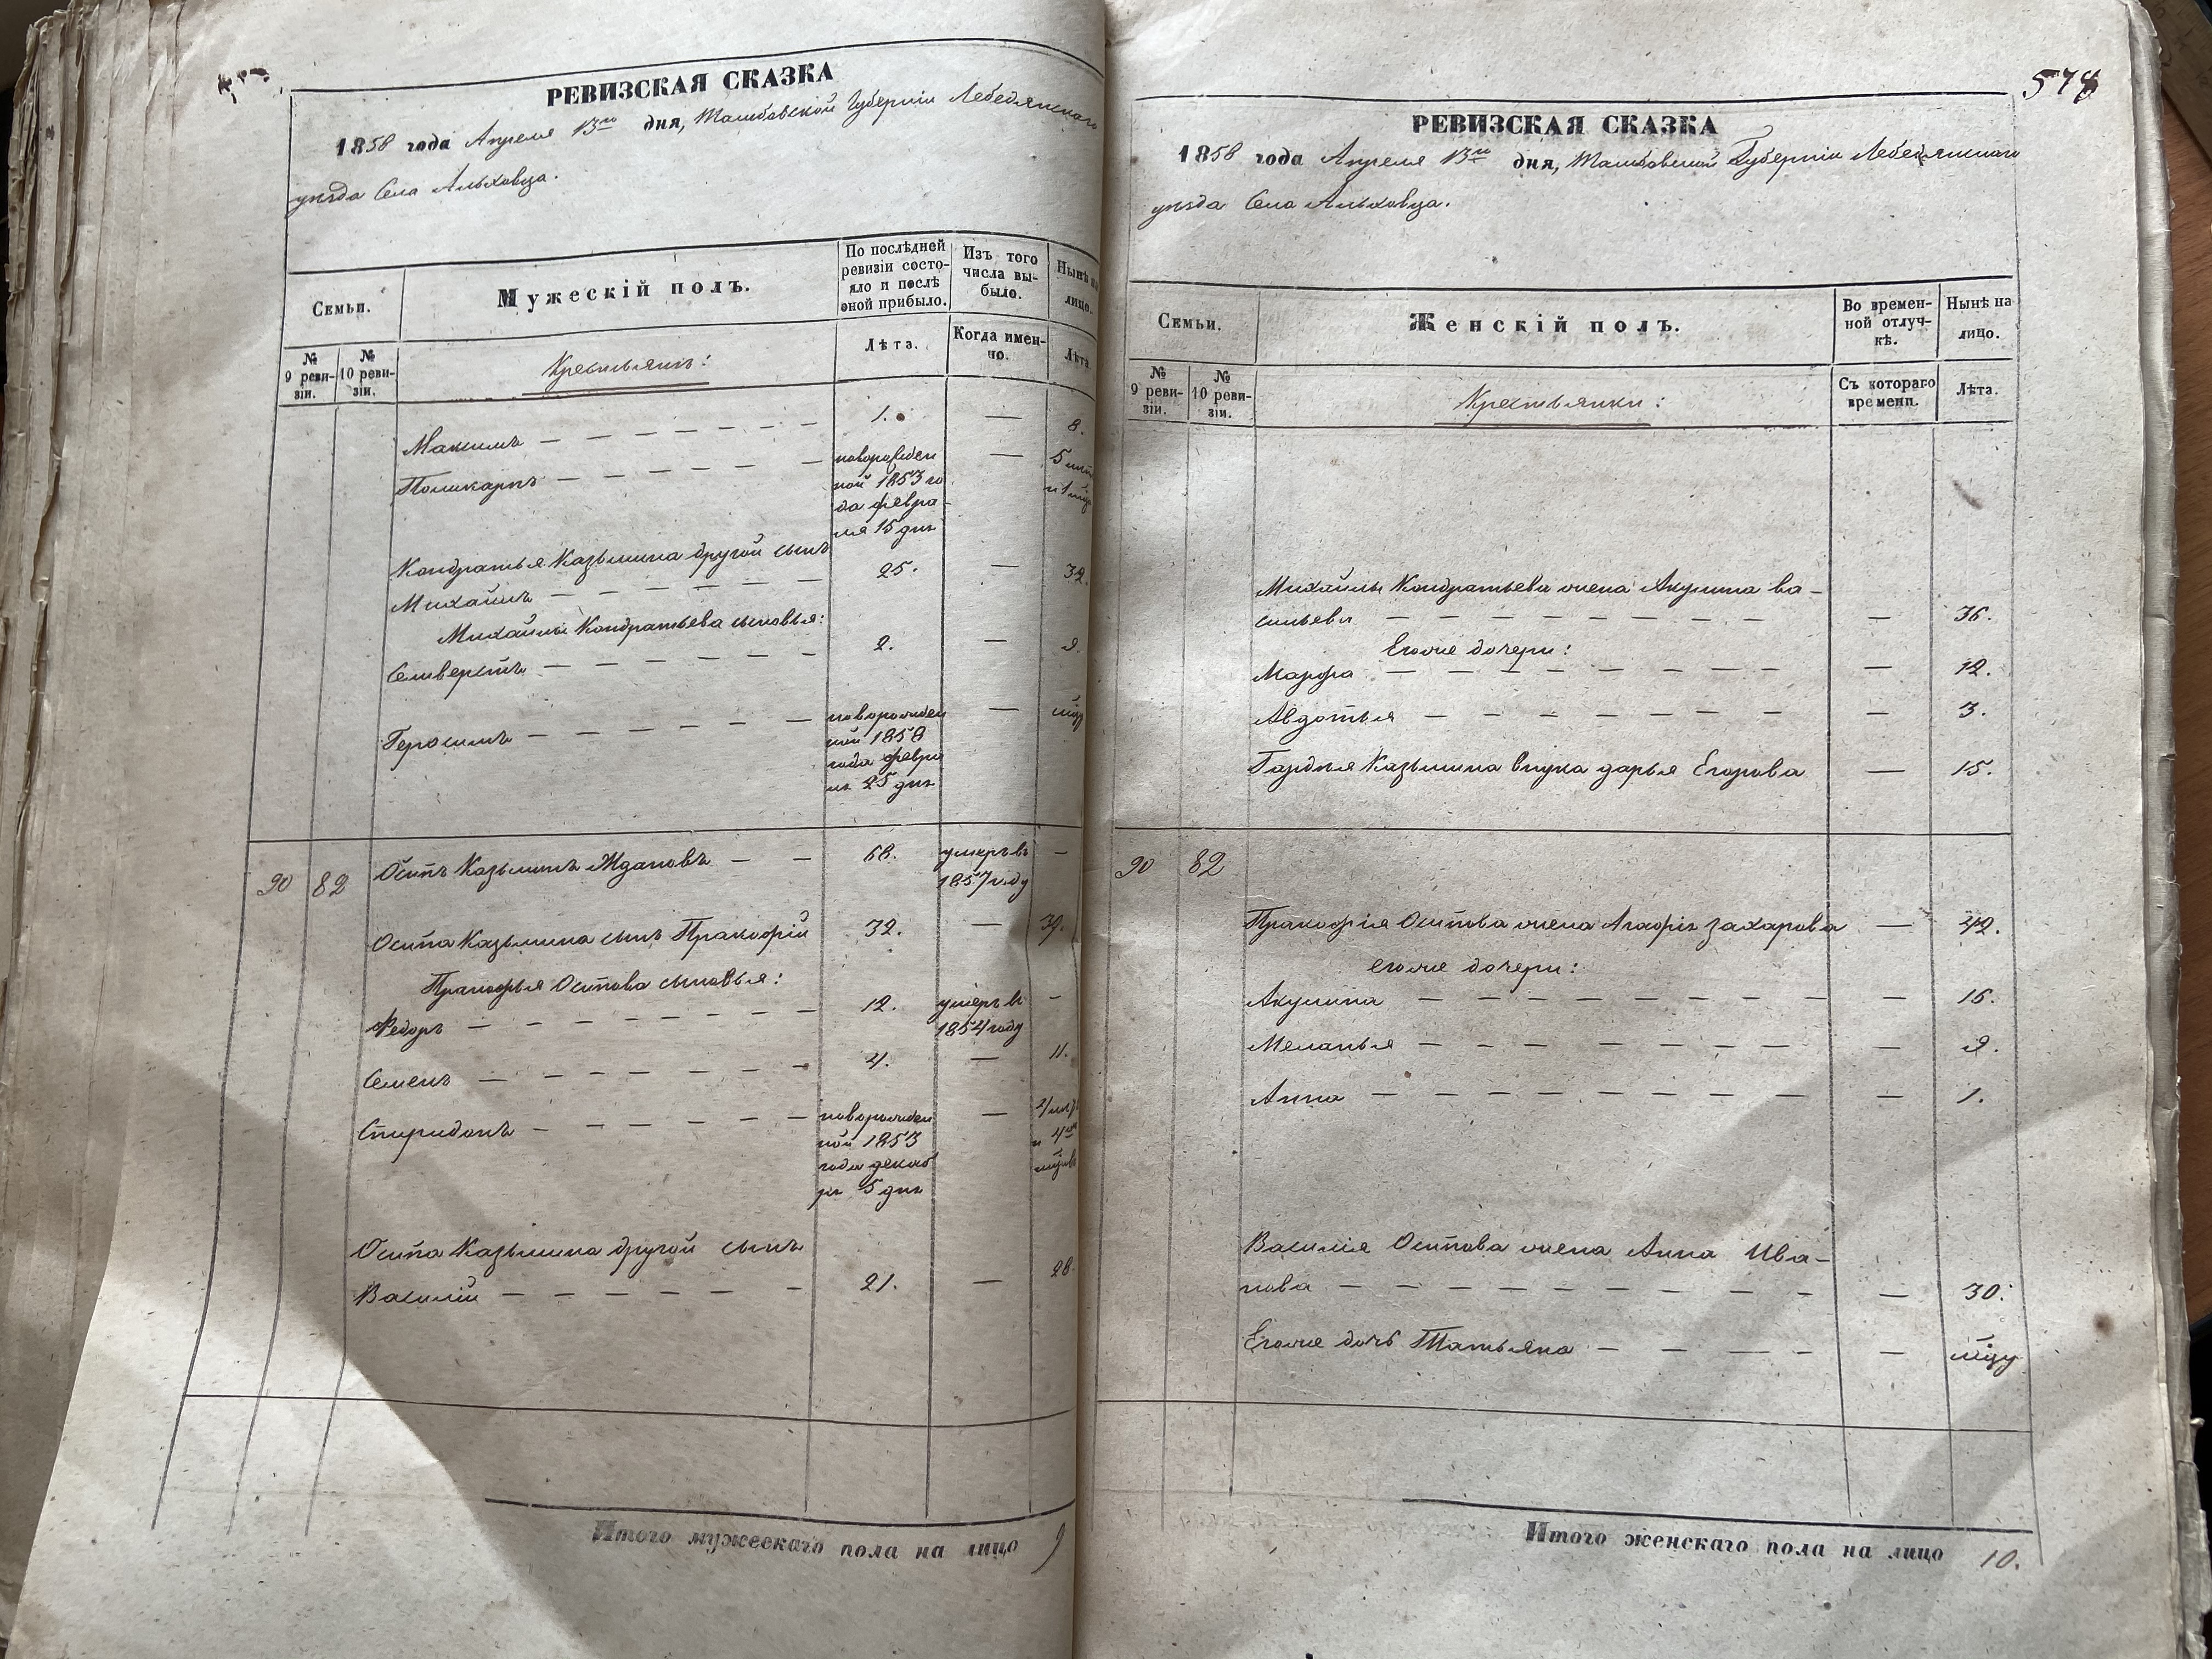 РЕВИЗСКАЯ СКАЗКА
1858 года Апреля 13го дня, Тамбовской Губернiи Лебедянскаго
уѣзда Села Альховца.
Семьи.
Мужескій полъ.
По послѣдней ревизіи состояло и послѣ оной прибыло.
Изъ того числа выбыло.
Нынѣ на лицо.
№ 9 ревизіи.
№ 10 ревизіи.
Крестьянъ:
Лѣта.
Когда именно.
Лѣта
Максимъ — — — — — — — 1. — 8.
Поликарпъ — — — — — — новорожден — 5 лѣтъ
ной 1853 го
да февра-
ля 15 дня
Кондратья Казьмина другой сынъ
Михайлъ — — — — — — 25. — 32.
Михайлы Кондратьева сыновья:
Селиверстъ — — — — — — 2. — 9.
Герасимъ — — — — — — новорожден —
ной 1858
года февра
ля 25 дня
90 82 Осипъ Казьминъ Ждановъ — — 68. умеръ въ —
1857 году
Осипа Казьмина сынъ Пракофій 32. — 39.
Пракофья Осипова сыновья:
Федоръ — — — — — — 12. умеръ въ -
1854 году
Семенъ — — — — — — 4. — 11.
Спиридонъ — — — — — — новорожден —
ной 1853
года декаб
ря 5 дня
Осипа Казьмина другой сынъ
Василій — — — — — — 21. — 28.
Итого мужескаго пола на лицо 9
РЕВИЗСКАЯ СКАЗКА
1858 года Апреля 13го дня, Тамбовской Губернiи Лебедянскаго
уѣзда Села Альховца.
Семьи.
Женскій полъ.
Во временной отлучкѣ.
Нынѣ на лицо.
№ 9 ревизіи.
№ 10 ревизіи.
Крестьянки:
Съ котораго времени.
Лѣта.
Михайлы Кондратьева жена Акулина ва-
сильева — — — — — — — — 36.
Егоже дочери:
Марфа — — — — — — — — 12.
Авдотья — — — — — — — — 3.
Казьмина внука дарья Егорова — 15.
90 82
Пракофія Осипова жена Агафія захарова — 42.
егоже дочери:
Акулина — — — — — — — — 16.
Меланья — — — — — — — — 9.
Анна — — — — — — — — — 1.
Василія Осипова жена Анна Ива-
нова — — — — — — — — — 30.
Егоже дочь Татьяна — — — — — мѣсяцу
Итого женскаго пола на лицо 10.